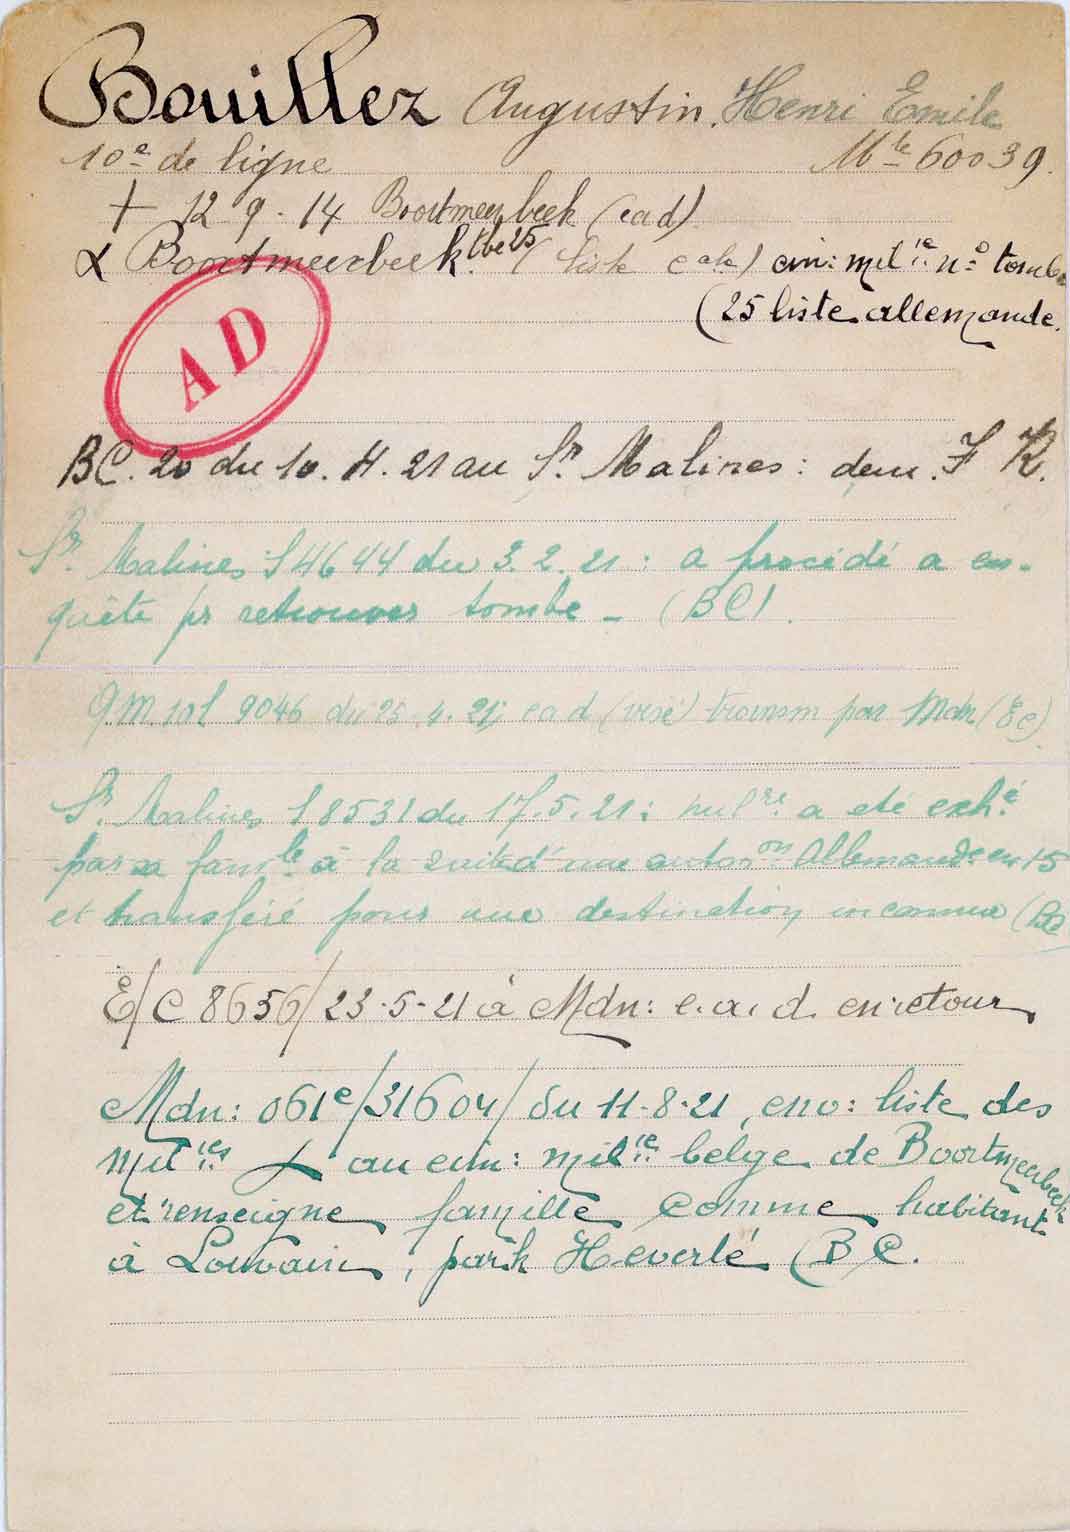 Bouillez Augustin. Henri Emile
10e de ligne Mle 60039.
+ 12 9 - 14 Boortmeerbeek (ead)
Boortmeerbeek tbe 25 (liste eale) cim: milre no tombe
(25 liste allemande.
AD
BC. 20 du 10. H. 21 au Sr Malines: dem. F R.
Sr. Malines S 4644 du 3. 2. 21 : a procédé a en-
quête pr retrouver tombe - (BC).
Q.M. 10l 9046 du 25. 4. 21; ead (visé) transm par Mdn (EC).
Sr. Malines S 8531 du 17.5.21: milre a eté exhé
par sa famle à la suite d'une autoron Allemande en 15
et transféré pour une destination inconnue (BC)
E/C 8656/23-5-21 à Mdn: e.a.d. en retour
Mdn: 061e/31604/ du 11-8-21, env: liste des
milres au cim: milre belge de Boortmeerbeek
et renseigne famille comme habitant
à Louvain, park Heverlé (BC.